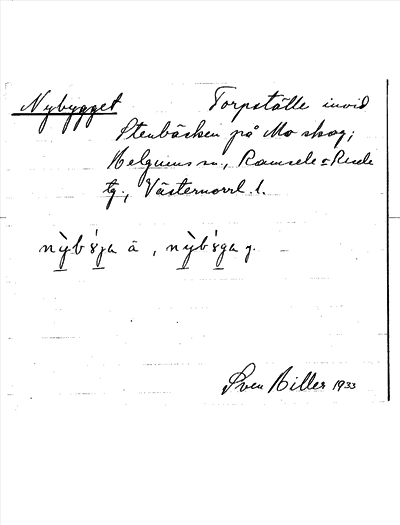 Nybygget Torpställe invid
Stenbäcken på Mo skog;
Helgums sn., Ramsele o Resele
tg., Västernorrl. l.
nỳbýga ä, nỳbýga y.
Sven Hiller 1933